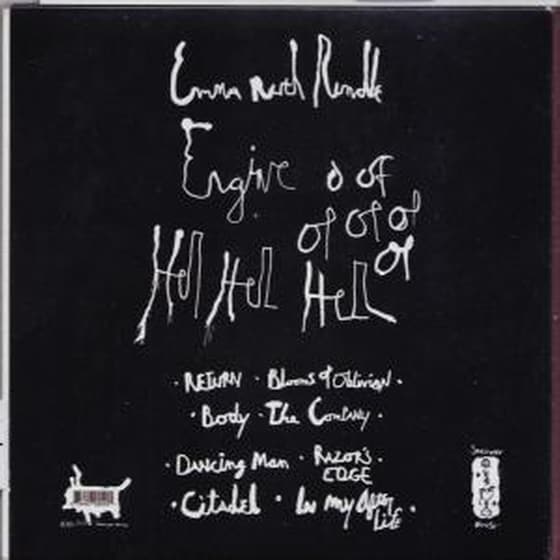 Emma Ruth Rundle
Engine of of
of of of
Hell Hell Hell of
· RETURN · Blooms of Oblivion ·
· Body · The Company ·
· Dancing Man · RAZOR'S EDGE ·
· Citadel · In my After Life ·